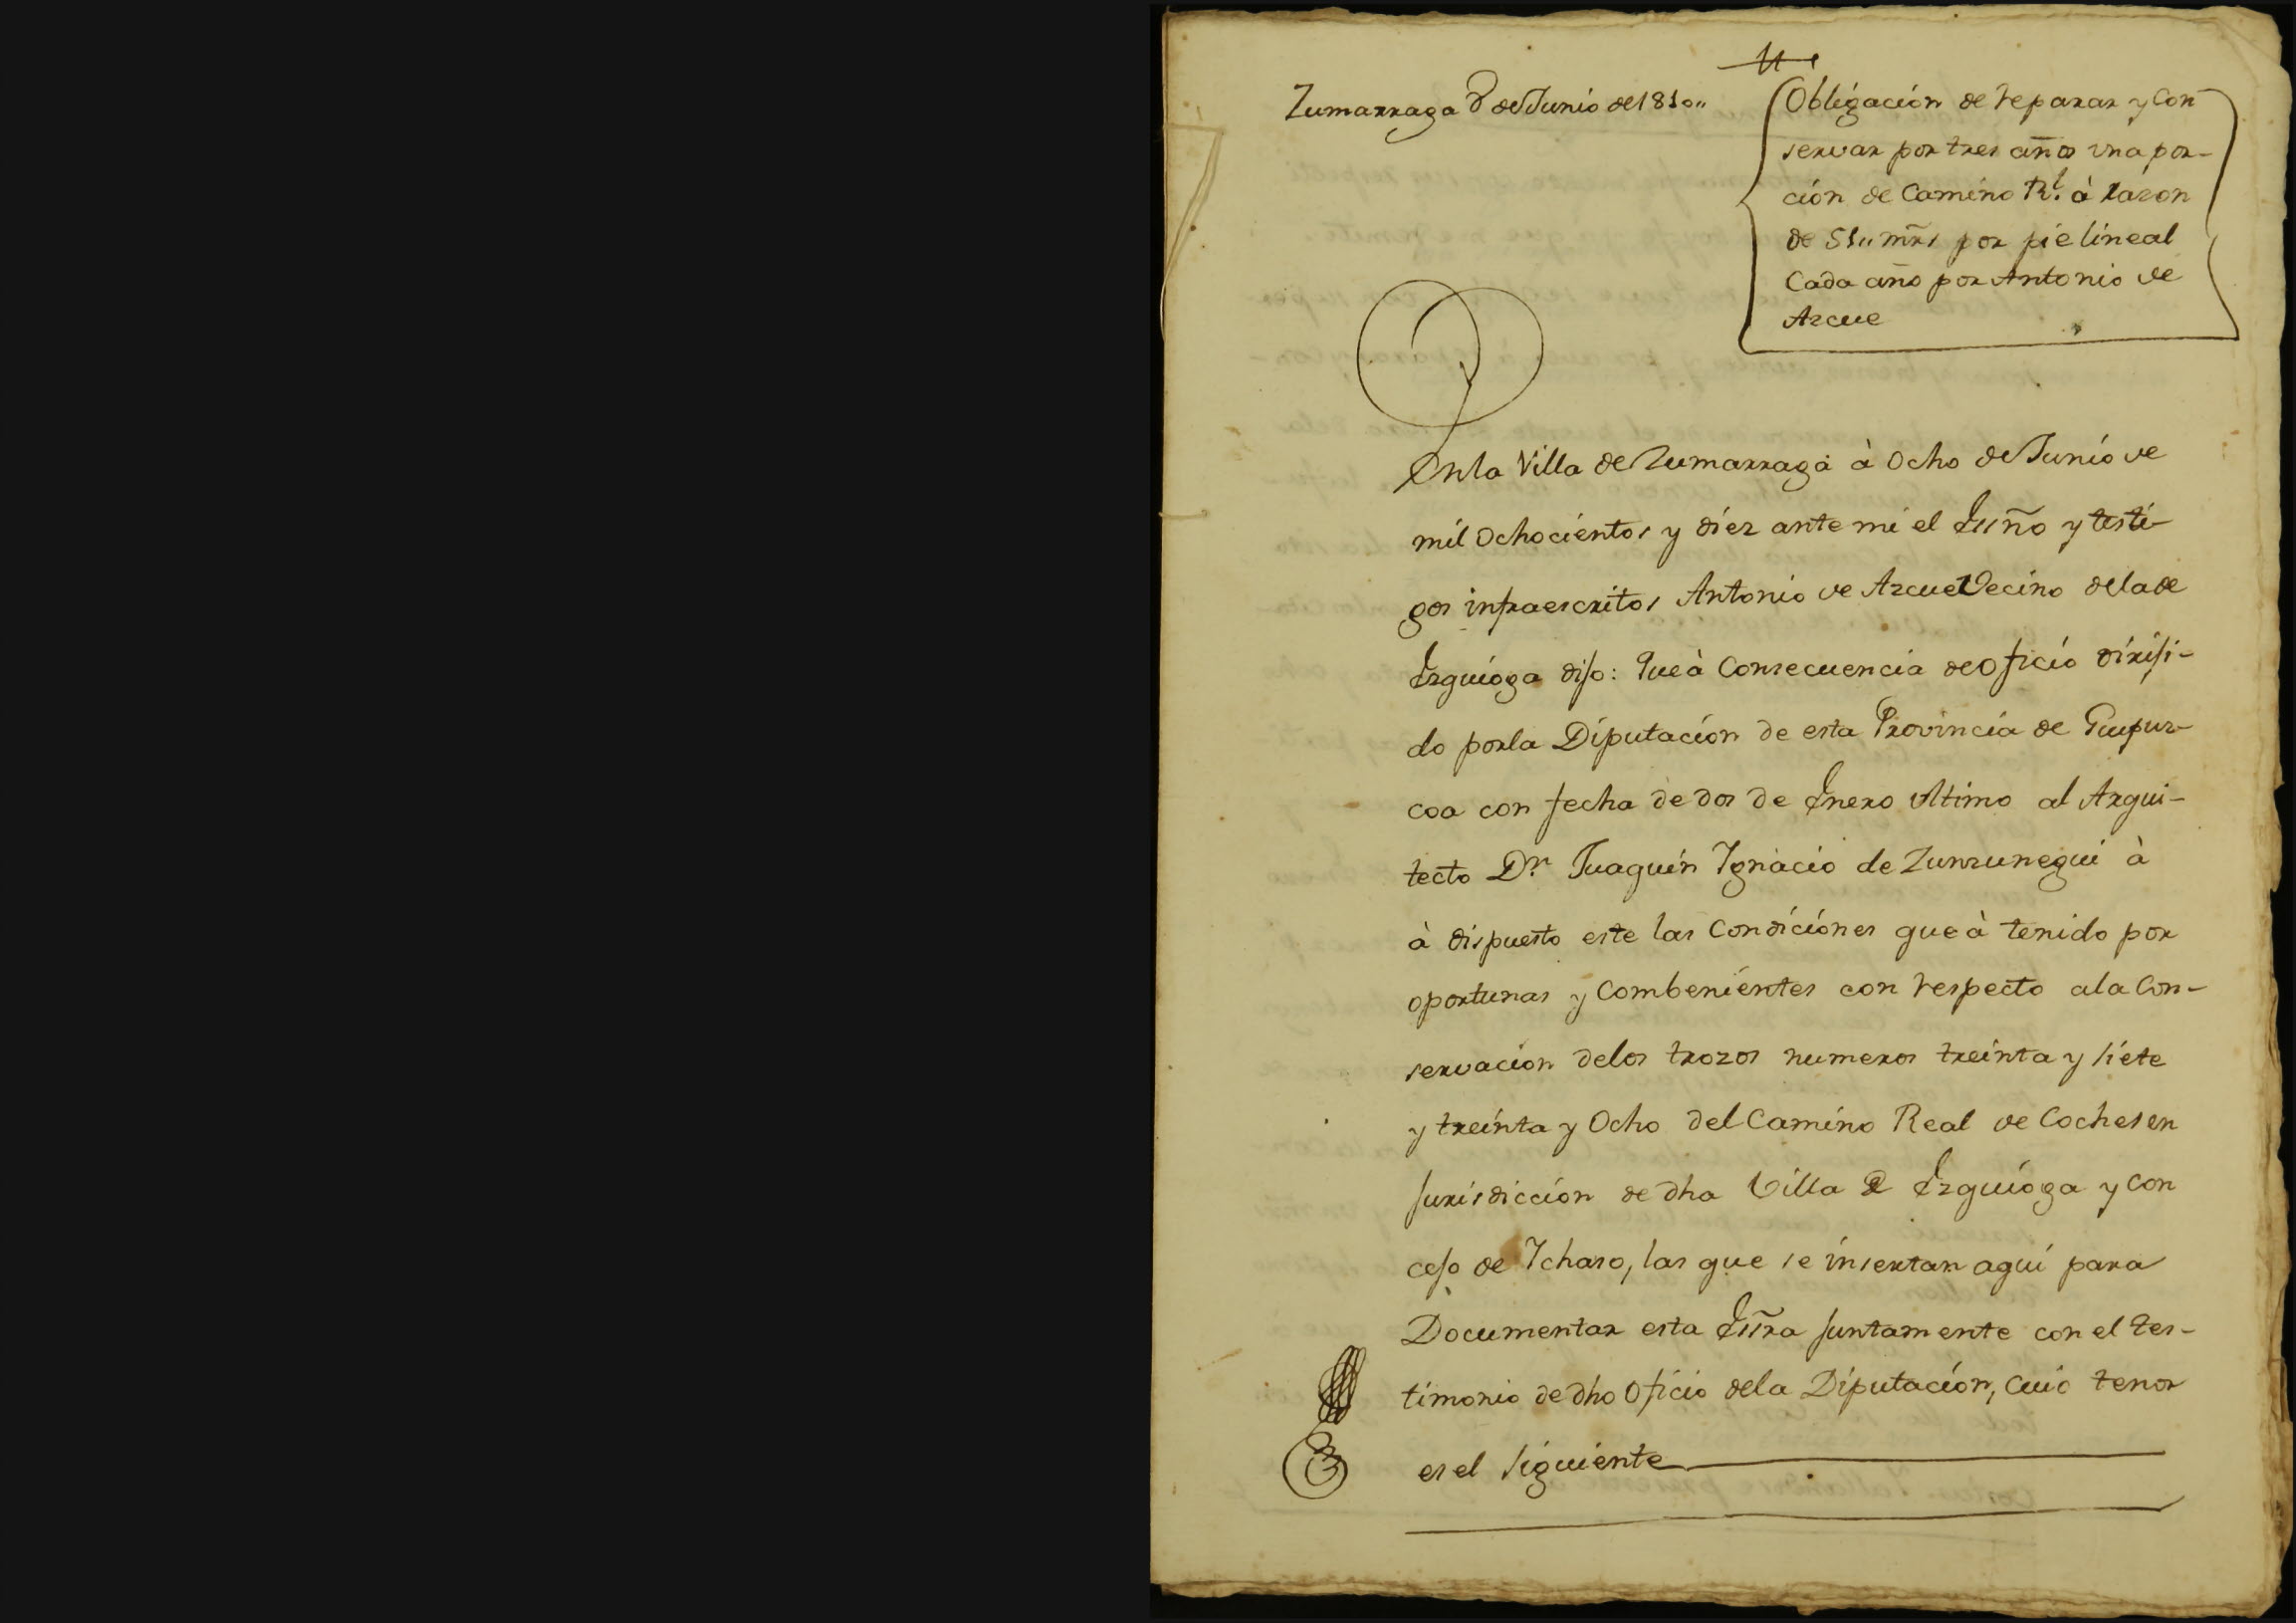 Zumarraga 8 de Junio de 1810,,
Obligación de reparar y con
servar por tres años vna por-
ción de Camino Rl. à razon
de 51,, mrs por pie lineal
Cada año por Antonio de
Azcue
En la Villa de Zumarraga à Ocho de Junio de
mil Ochocientos y diez ante mi el Essño y testi-
gos infraescritos Antonio de Azcue Vecino de la de
Ezquioga dijo: Que à Consecuencia de Oficio dirigi-
do por la Diputación de esta Provincia de Guipuz-
coa con fecha de dos de Enero vltimo al Arqui-
tecto Dn. Juaquin Ygnacio de Zunzunegui à
à dispuesto este las Condiciónes que à tenido por
oportunas y Combenientes con respecto a la Con-
servacion de los trozos numeros treinta y siete
y treinta y Ocho del Camino Real de Coches en
jurisdicción de dha Villa de Ezquioga y con
cejo de Ychaso, las que se insertan aqui para
Documentar esta Essra juntamente con el tes-
timonio de dho Oficio de la Diputación, cuio tenor
es el siguiente